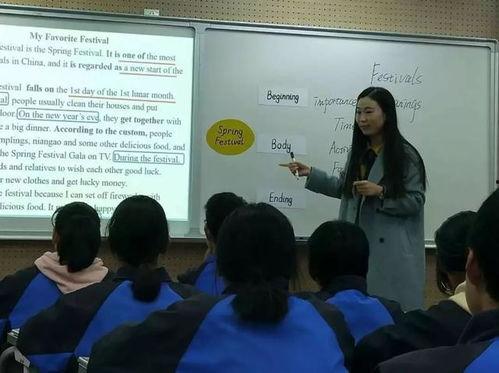 My Favorite Festival
estival is the Spring Festival. It is one of the most
als in China, and it is regarded as a new start of the
estival falls on the 1st day of the 1st lunar month.
al, people usually clean their houses and put
door. On the new year's eve, they get together with
e a big dinner. According to the custom, people
mplings, niangao and some other delicious food, and
the Spring Festival Gala on TV. During the festival,
ds and relatives to wish each other good luck.
r new clothes and get lucky money.
e festival because I can set off firew with
licious food. It
Spring
Festival
Beginning
Body
Ending
Festivals
Importance
anings
Time